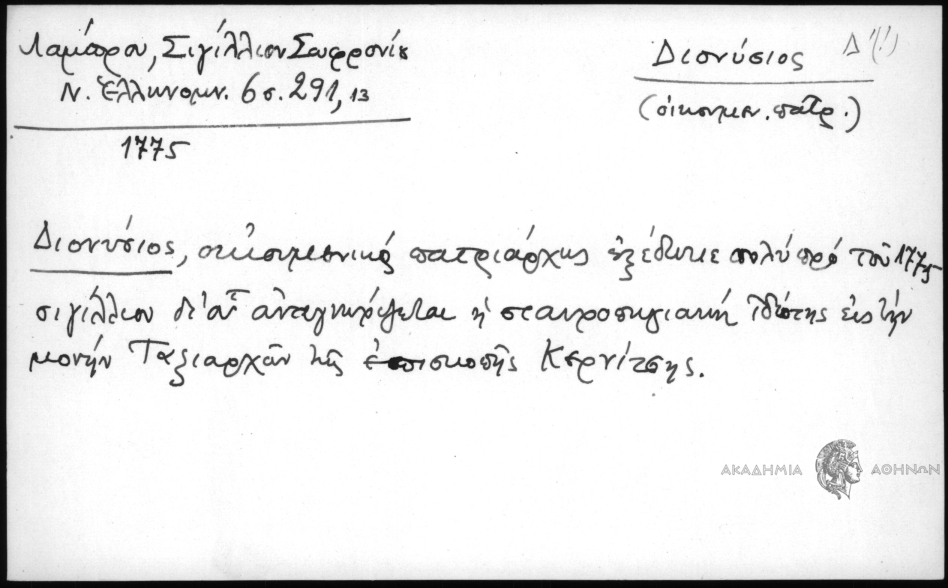 Λάμπρου, Σιγίλλιον Σωφρονίου
Ν. Ἑλληνομν. 6 σ. 291, 13
1775
Διονύσιος Δ΄(!)
(οἰκουμεν. πατρ.)
Διονύσιος, οἰκουμενικός πατριάρχης ἐξέδωκε πολύ πρό τοῦ 1775
σιγίλλιον δι' οὗ ἀναγνωρίζεται ἡ σταυροπηγιακή ἰδιότης εἰς τήν
μονήν Ταξιαρχῶν τῆς ἐπισκοπῆς Κερνίτσης.
ΑΚΑΔΗΜΙΑ ΑΘΗΝΩΝ